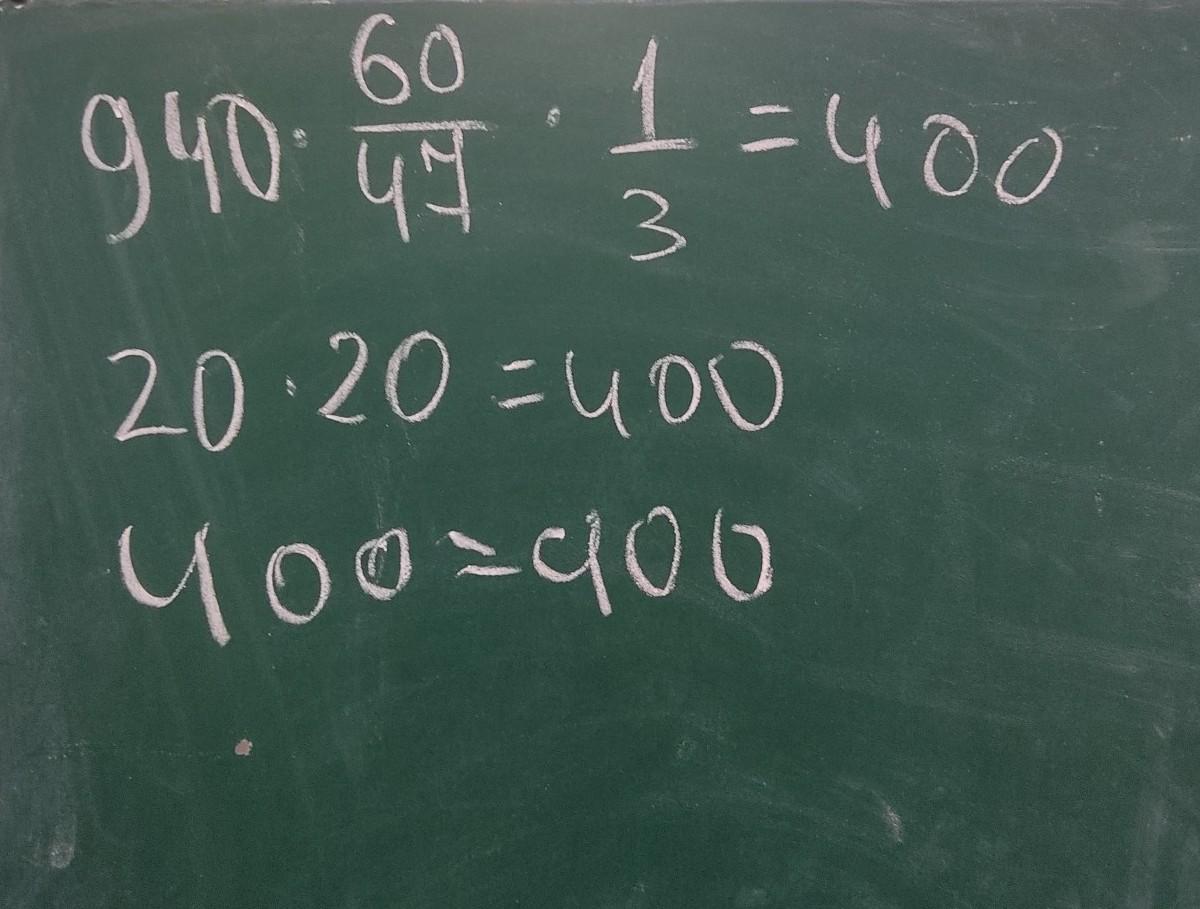 940 · 60/47 · 1/3 = 400
20 · 20 = 400
400 = 400